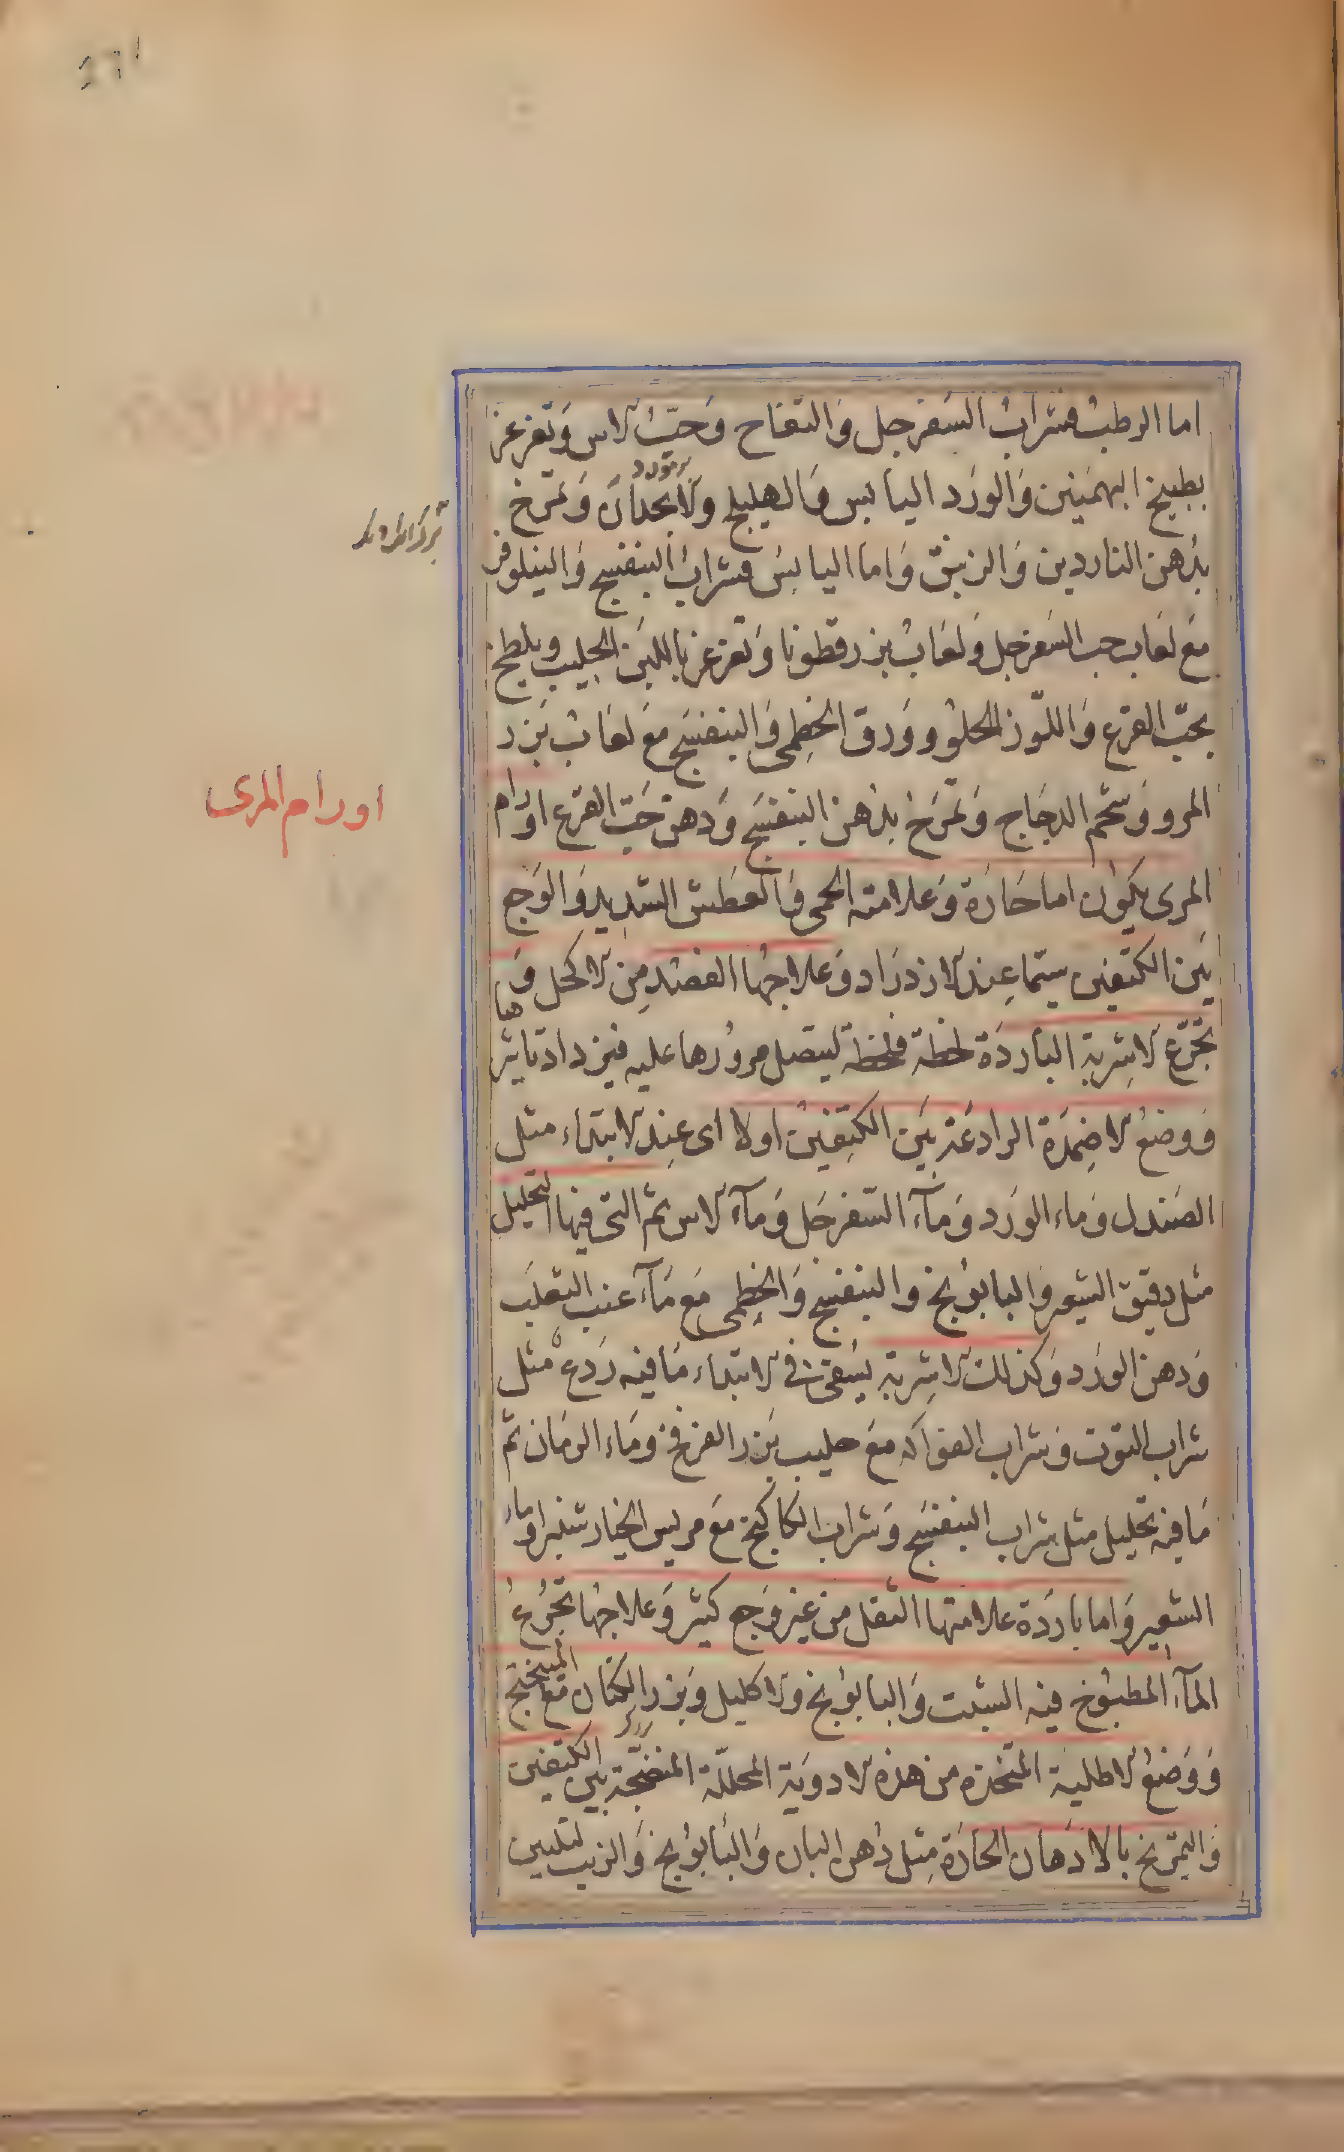 اما الرطب فشراب السفرجل والتفاح وحب الاس وتغرغر
بطبيخ البهمنين والورد اليابس والهليلج والابجدان وتمرخ
بدهن الناردين والزنبق واما اليابس فشراب البنفسج والنيلوفر
مع لعاب حب السفرجل ولعاب بزر قطونا وتغرغر باللبن الحليب ويلطخ
بحب القرع واللوز الحلو وورق الخطمى والبنفسج مع لعاب بزر
المرو وشحم الدجاج وتمرخ بدهن البنفسج ودهن حب القرع اورام
اورام المرى
المرى يكون اما حارة وعلامته الحمى والعطش الشديد والوجع
بين الكتفين سيما عند الازدراد وعلاجها الفصد من الاكحل و
تجرع الاشربة الباردة لحظة فلحظة ليتصل مرورها عليه فيزداد تاثير
ها
ووضع الاضمدة الرادعة بين الكتفين اولا اى عند الابتداء مثل
الصندل وماء الورد ومآء السفرجل ومآء الاس ثم التى فيها التحليل
مثل دقيق الشعير والبابونج والبنفسج والخطمى مع مآء عنب الثعلب
ودهن الورد وكذلك الاشربة يسقى فى الابتداء ما فيه ردع مثل
شراب التوت وشراب الفواكه مع حليب بزر الفرفخ وماء الرمان ثم
ما فيه تحليل مثل شراب البنفسج وشراب الكاكنج مع مريس الخيار شنبر او ماء
الشعير واما باردة علامتها الثقل من غير وجع كثير وعلاجها تجرع
المآء المطبوخ فيه الشبت والبابونج والاكليل وبزر الكتان مع الميبختج
ووضع الاطلية المتخذه من هذه الادوية المحللة المنضجة بين الكتفين
والتمريخ بالادهان الحارة مثل دهن البان والبابونج والزيت لتليين